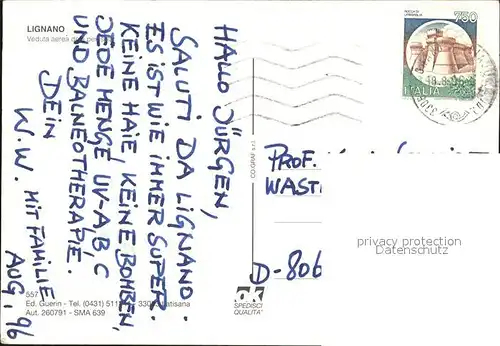 LIGNANO
Veduta aerea
HALLO JÜRGEN,
SALUTI DA LIGNANO.
ES IST WIE IMMER SUPER.
KEINE HAIE KEINE BOHREN,
JEDE MENGE UV-A,B C
UND BALNEOTHERAPIE.
DEIN
W.W. MIT FAMILIE
AUG, 96
ROCCA DI
750
ITALIA
PROF.
WAST
D-806
privacy protection
VIRTUALMONUMENT
557
Ed. Guerin - Tel. (0431) 511 Latisana
Aut. 260791 - SMA 639
CO.GRAF s.r.l.
ok
SPEDISCI
QUALITA'